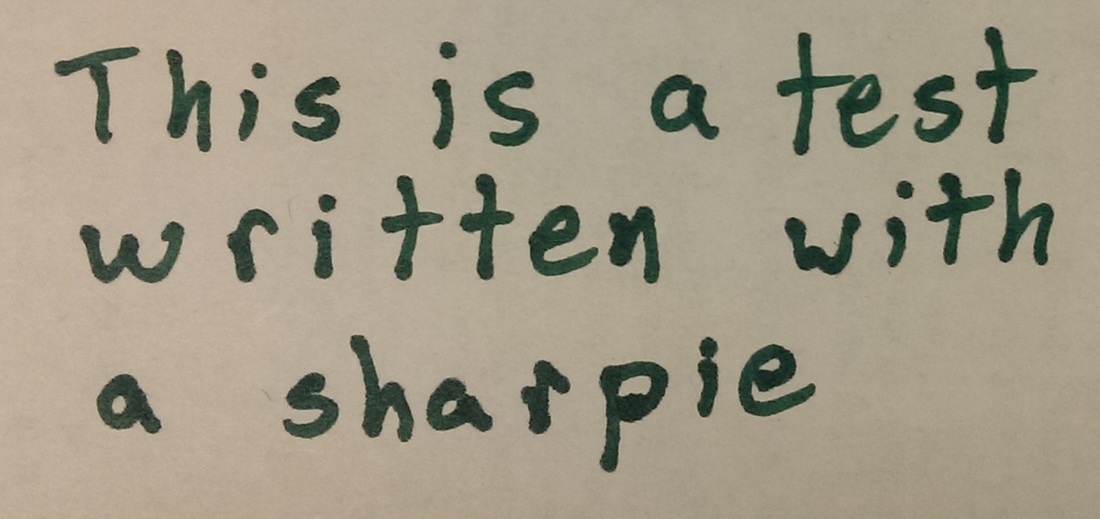 This is a test
written with
a sharpie